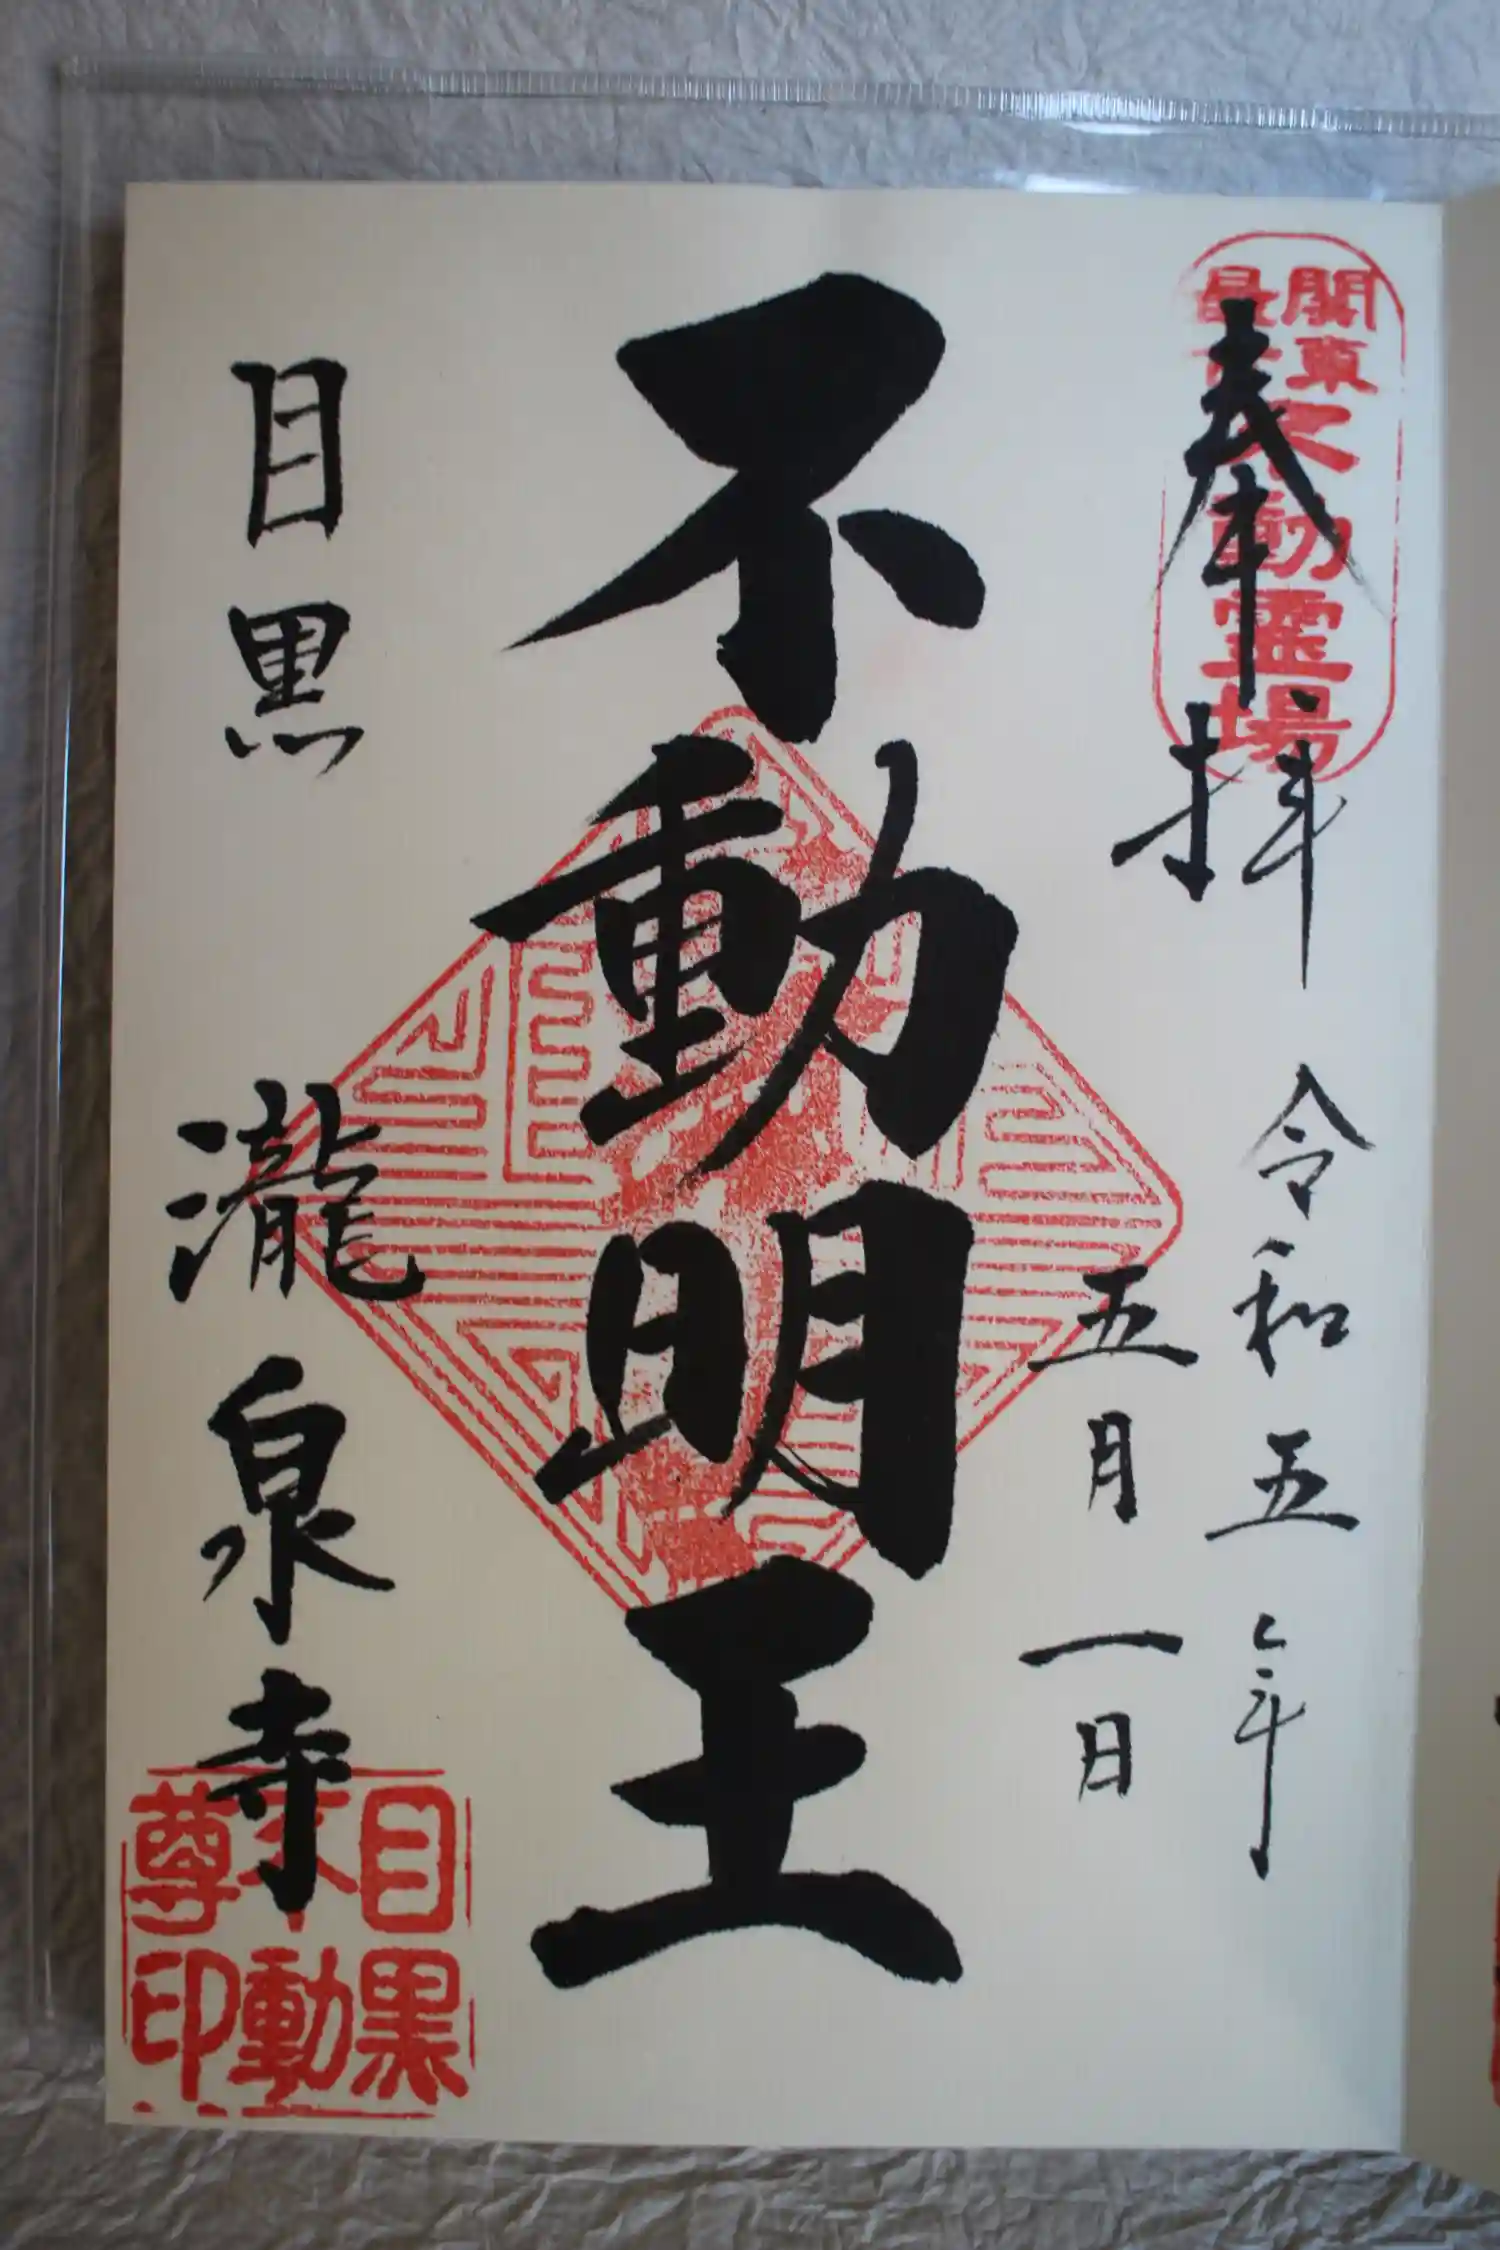 奉拝
関東
最古不動霊場
令和五年
五月一日
不動明王
目黒 瀧泉寺
目黒
不動
尊印